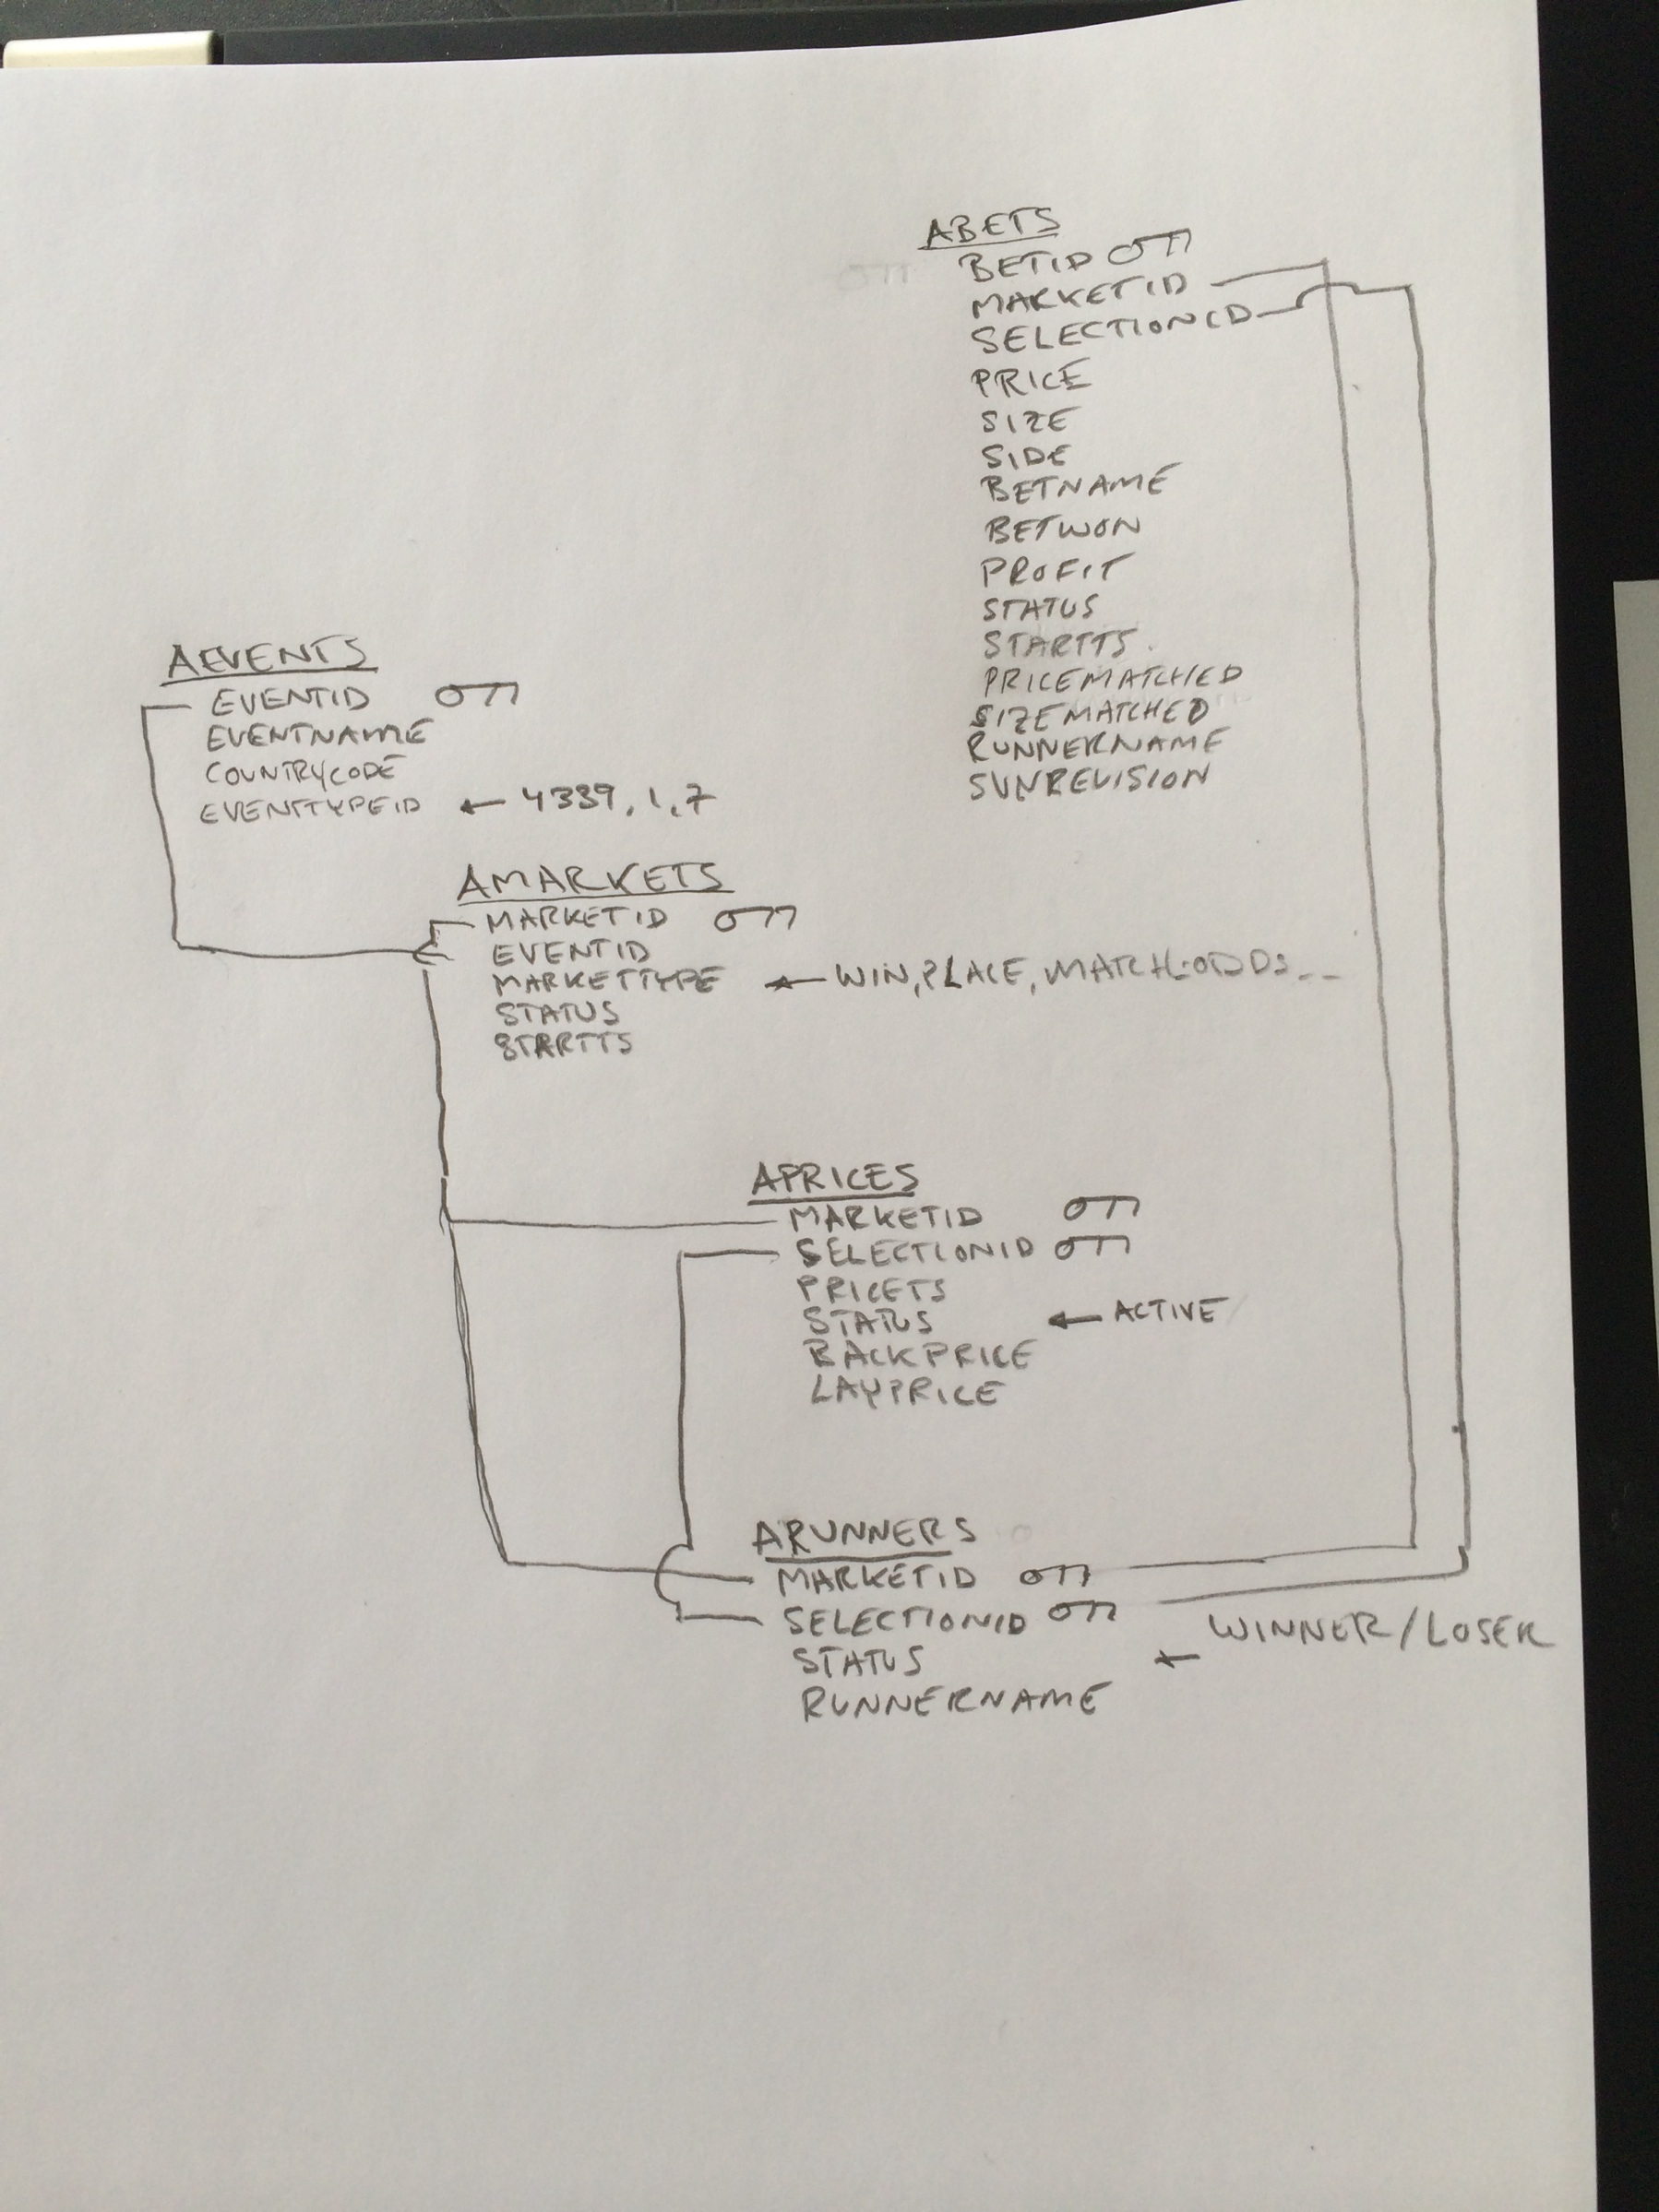 ABETS
BETID
MARKETID
SELECTIONID
PRICE
SIZE
SIDE
BETNAME
BETWON
PROFIT
STATUS
STARTTS
PRICEMATCHED
SIZEMATCHED
RUNNERNAME
SVNREVISION
AEVENTS
EVENTID
EVENTNAME
COUNTRYCODE
EVENTTYPEID ← 4339, 1, 7
AMARKETS
MARKETID
EVENTID
MARKETTYPE ← WIN, PLACE, MATCH-ODDS--
STATUS
STARTTS
APRICES
MARKETID
SELECTIONID
PRICETS
STATUS ← ACTIVE
BACKPRICE
LAYPRICE
ARUNNERS
MARKETID
SELECTIONID
STATUS ← WINNER/LOSER
RUNNERNAME